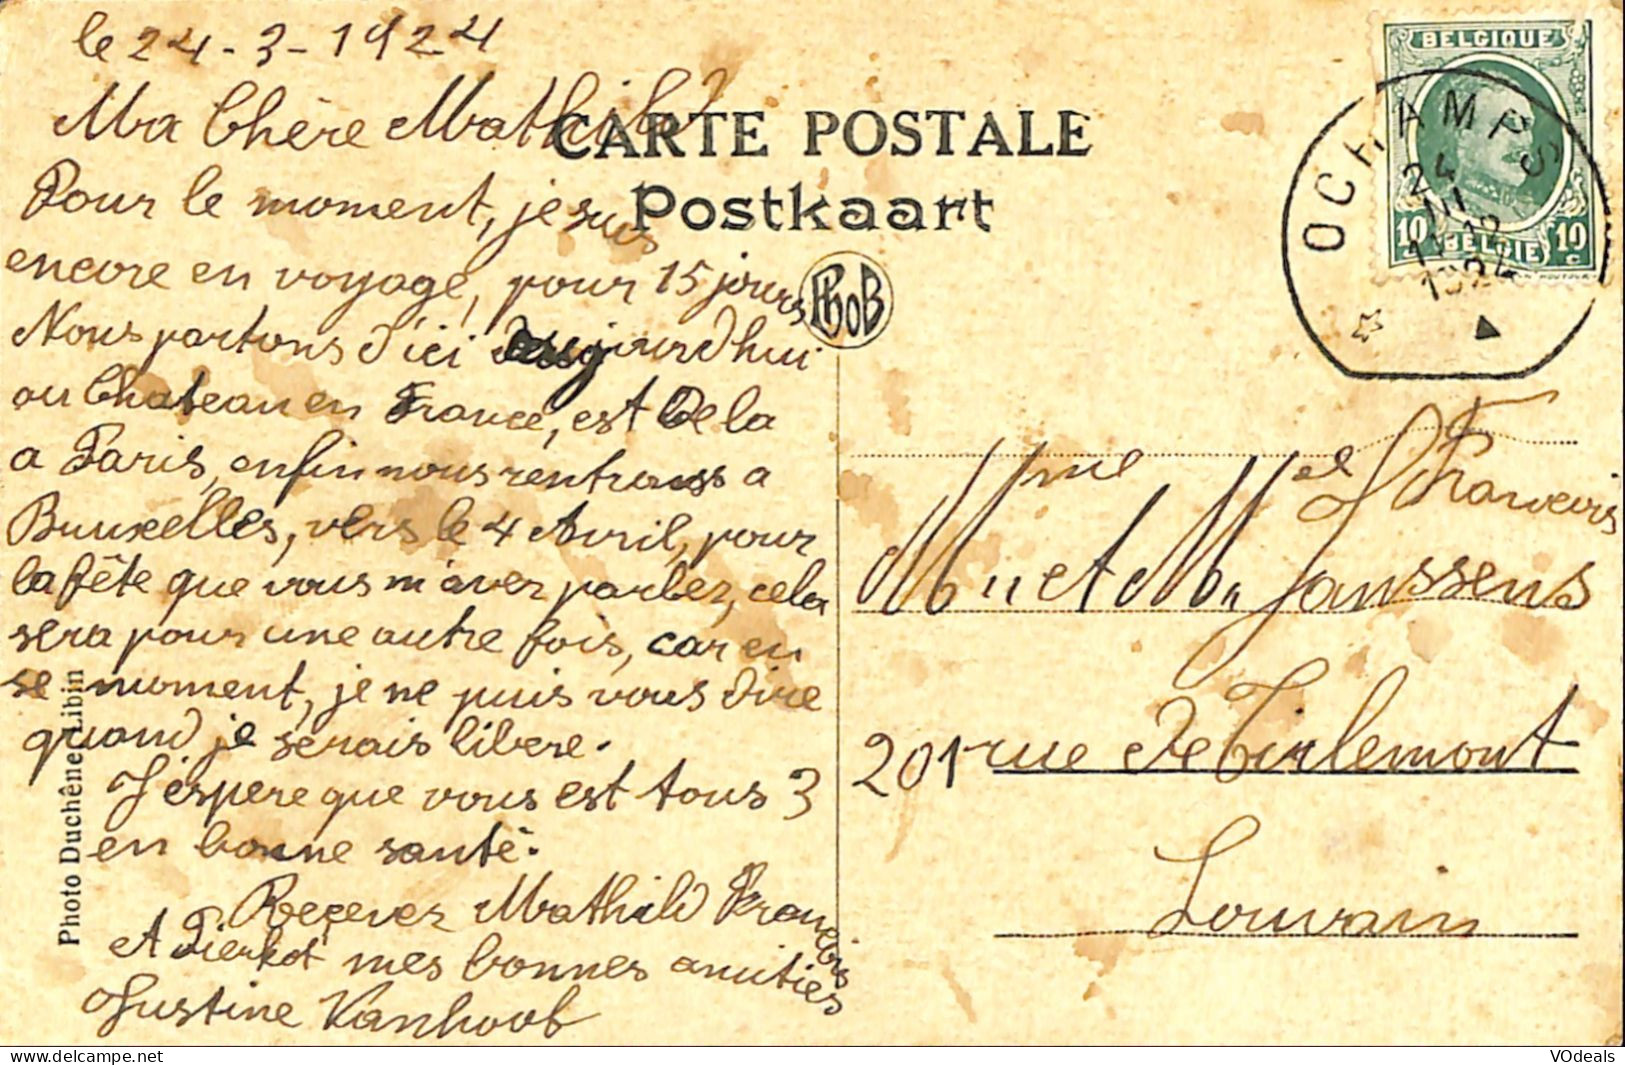 le 24-3-1924
Ma Chère Mathild
CARTE POSTALE
Postkaart
Pour le moment, je suis
encore en voyage, pour 15 jours
Nous partons d'ici aujourdhui
au Chateau en France, est de la
a Paris, enfin nous rentrons a
Bruxelles, vers le 4 Avril, pour
la fête que vous m'avez parlez, cela
sera pour une autre fois, car en
se moment, je ne puis vous dire
quand je serais libere.
J'espere que vous est tous 3
en bonne santé.
Recever Mathild Francois
et Pierkot mes bonnes amities
Justine Vanhoof
Photo Duchêne Libin
PhoB
BELGIQUE
10 BELGIE 10
c
OCHAMPS
24
III
11-12
1924
Mme et Mel Francois
Janssens
201 rue de Tirlemont
Louvain
delcampe.net
VOdeals